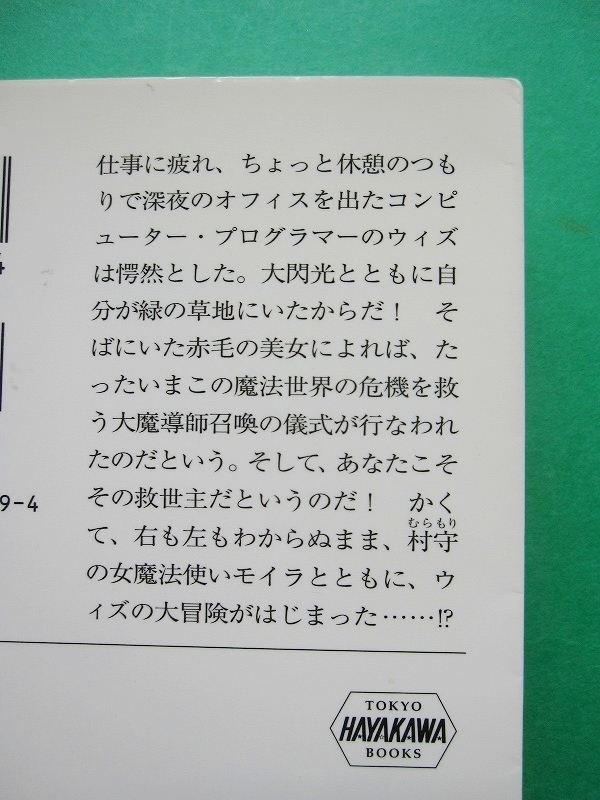 仕事に疲れ、ちょっと休憩のつも
りで深夜のオフィスを出たコンピ
ューター・プログラマーのウィズ
は愕然とした。大閃光とともに自
分が緑の草地にいたからだ！　そ
ばにいた赤毛の美女によれば、た
ったいまこの魔法世界の危機を救
う大魔導師召喚の儀式が行なわれ
たのだという。そして、あなたこそ
その救世主だというのだ！　かく
むらもり
て、右も左もわからぬまま、村守
の女魔法使いモイラとともに、ウ
ィズの大冒険がはじまった……!?
4
9-4
TOKYO
HAYAKAWA
BOOKS